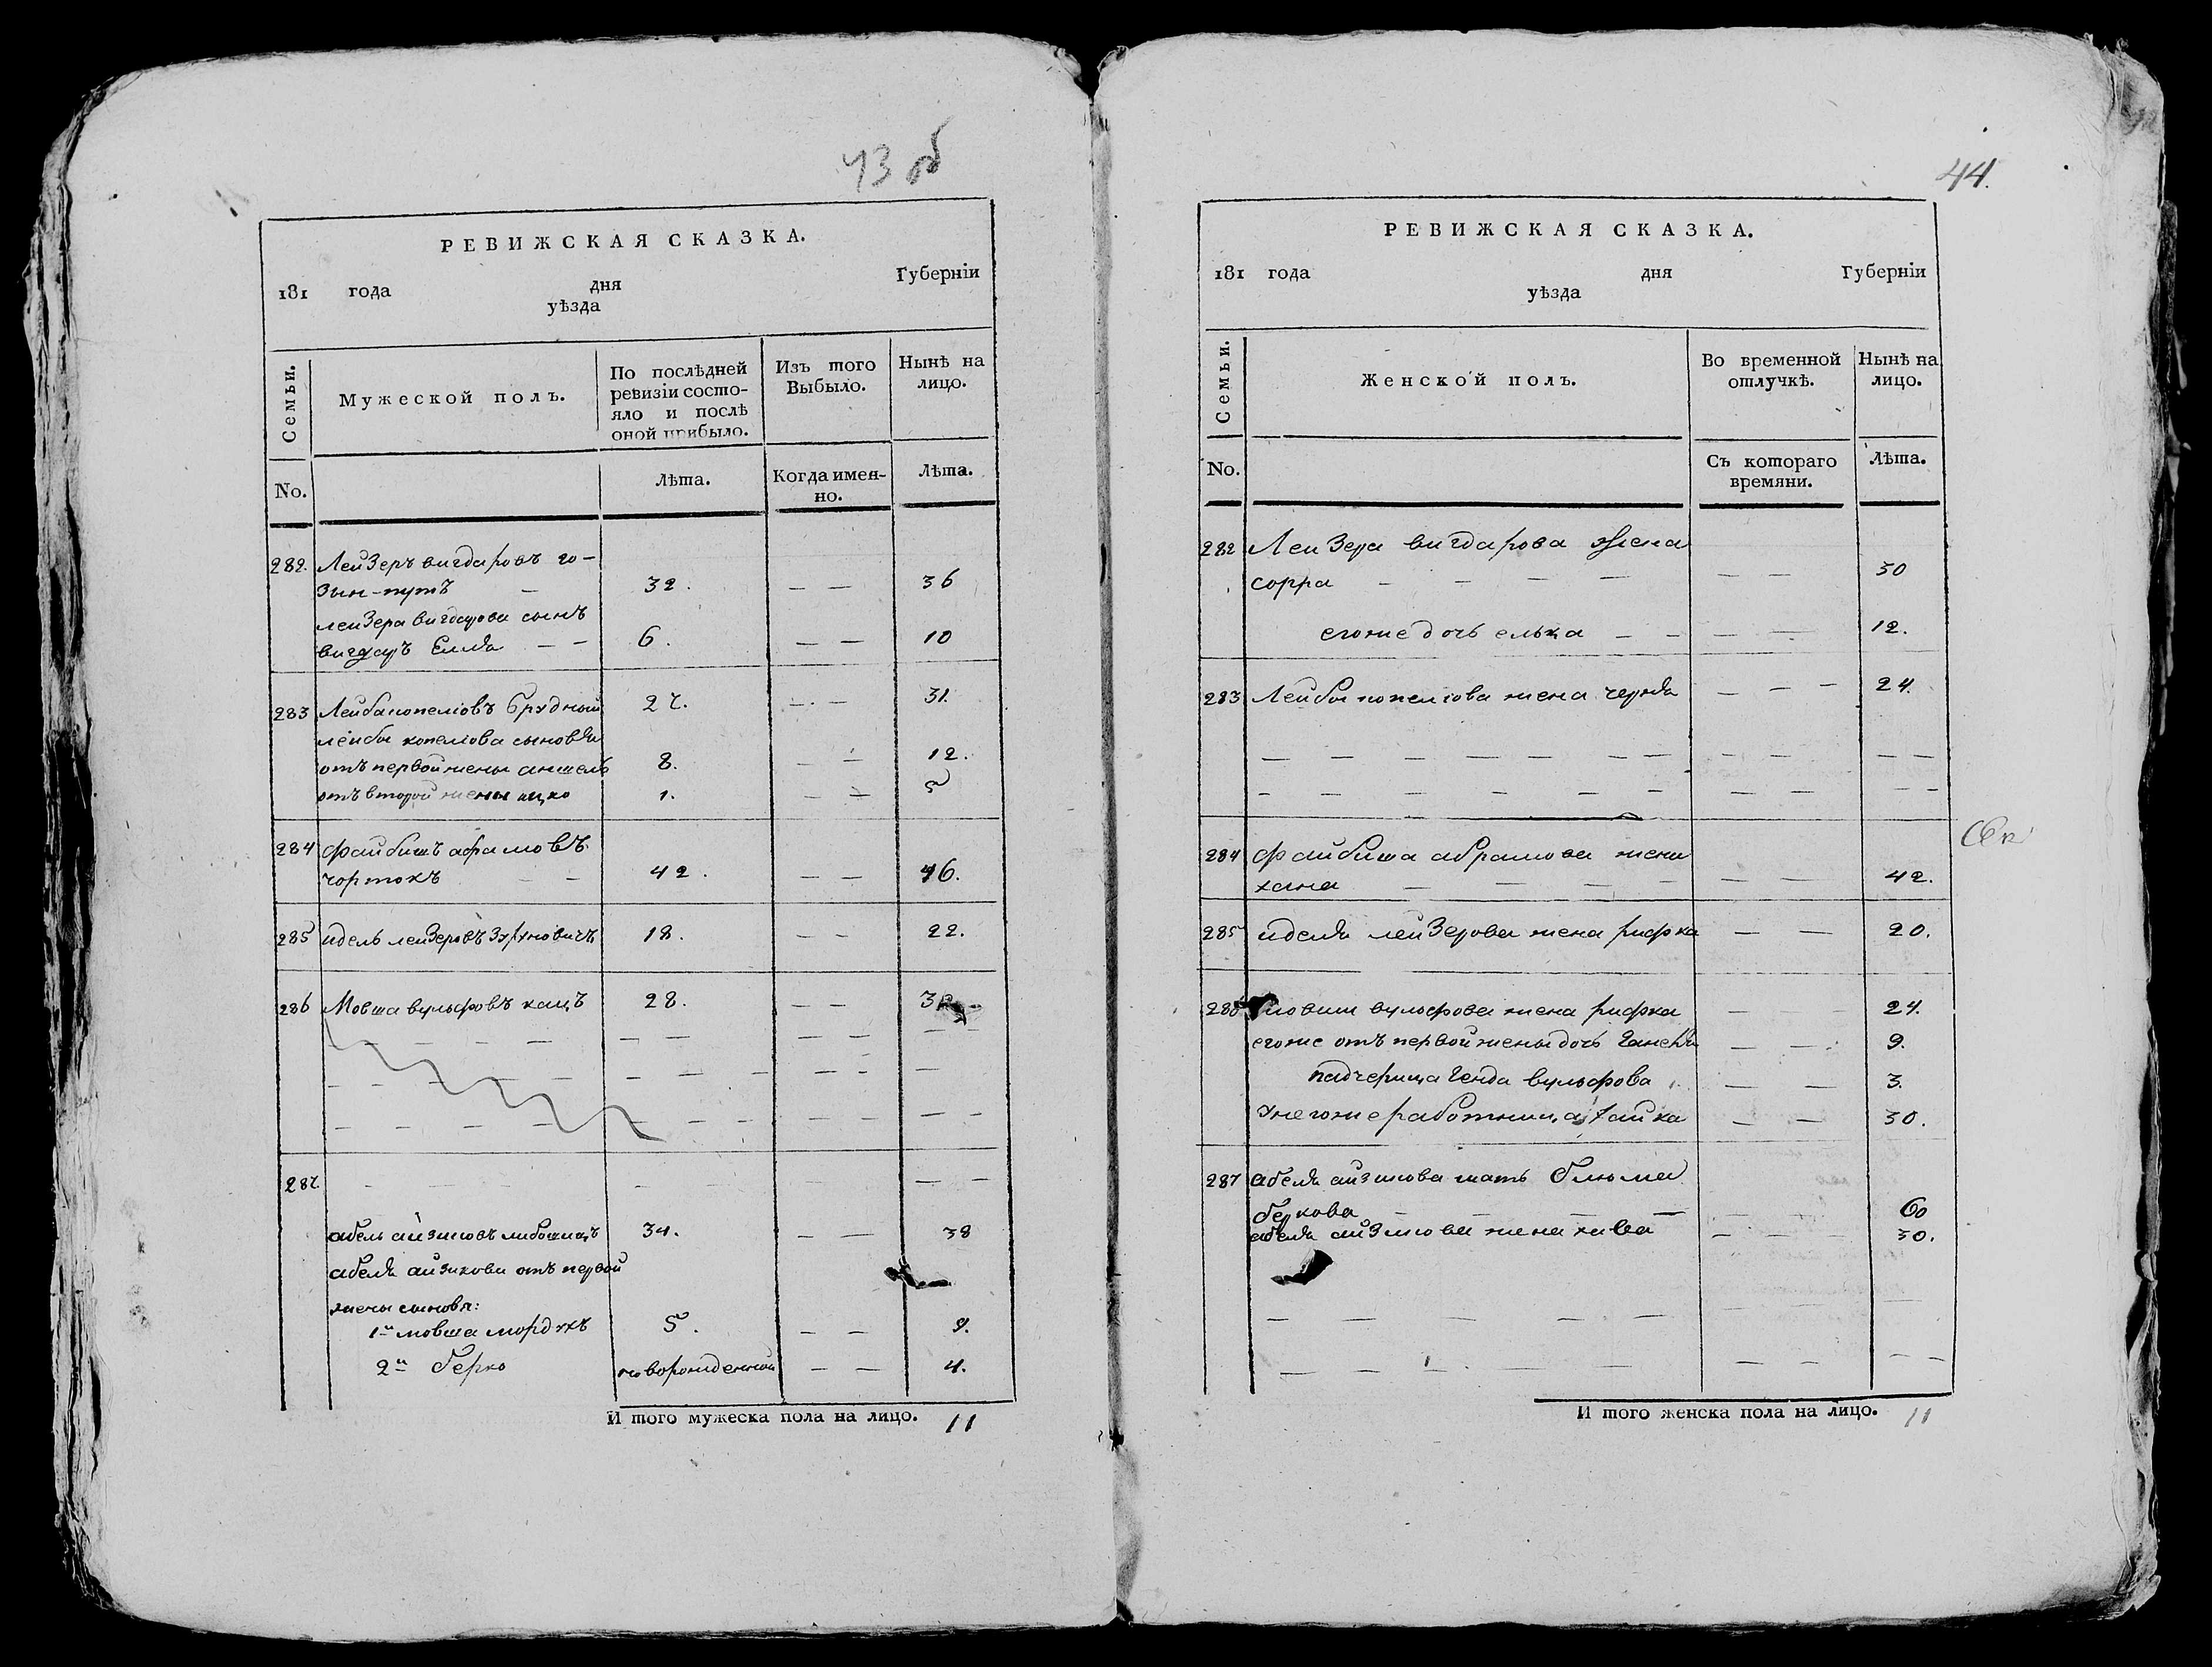 43 об
РЕВИЖСКАЯ СКАЗКА.
181 года дня Губернїи
уѣзда
Семьи. Мужеской полъ. По послѣдней ревизїи состояло и послѣ оной прибыло. Изъ того Выбыло. Нынѣ на лицо.
No. Лѣта. Когда именно. Лѣта.
282. Лейзеръ вигдаровъ го-
зын-путъ — 32. — — 36
лейзера вигдорова сынъ
вигдоръ Еиля — — 6. — — 10
283 Лейба копелiовъ брудный 27. — — 31.
лейбы копелiова сыновья
отъ первой жены аншель 8. — — 12.
отъ второй жены ицко 1. — — 5
284 файбишъ абрамовъ
чортокъ — — 42. — — 46.
285 идель лейзеровъ 18. — — 22.
286 Мовша вульфовъ кацъ 28. — —
287. — — —
абель айзиковъ 34. — — 38
абеля айзикова отъ первой
жены сыновя:
1й мовша мордухъ 5. — — 9.
2й берко новорожденной — — 4.
И того мужеска пола на лицо. 11
44.
РЕВИЖСКАЯ СКАЗКА.
181 года дня Губернїи
уѣзда
Семьи. Женской полъ. Во временной отлучкѣ. Нынѣ на лицо.
No. Съ котораго времяни. Лѣта.
282 Лейзера вигдарова жена
сорра — — — — — — 30
егоже дочь елька — — — — 12.
283 Лейбы копелiова жена черня — — — 24.
284 файбиша абрамова жена
хана — — — — — — 42.
285 иделя лейзерова жена рифка — — 20.
286 мовши вульфова жена рифка — — 24.
егоже отъ первой жены дочь — — 9.
падчерица генда вульфова — — 3.
у негоже работница — — 30.
287 абеля айзикова мать блюма
беркова — — — 60
абеля айзикова жена хива — — — 30.
И того женска пола на лицо. 11